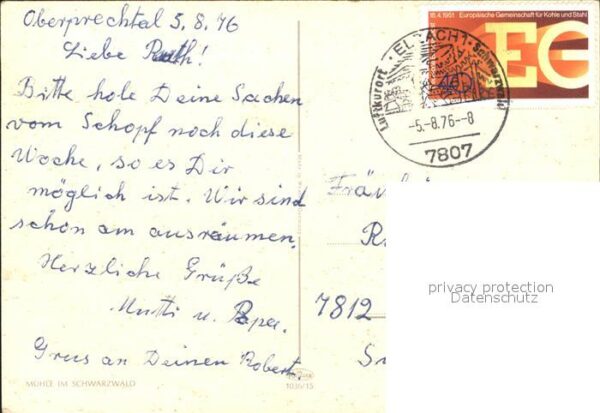 Oberprechtal 5.8.76
Liebe Ruth!
Bitte hole Deine Sachen
vom Schopf noch diese
Woche, so es Dir
möglich ist. Wir sind
schon am ausräumen.
Herzliche Grüße
Mutti u. Papa.
Grus an Deinen Robert.
MÜHLE IM SCHWARZWALD
1036/15
16.4.1951 Europäische Gemeinschaft für Kohle und Stahl
EG
40
ELZACH 1
Luftkurort
Schwarzwald
-5.-8.76--8
7807
Fräulein
R
7812
privacy protection
Datenschutz